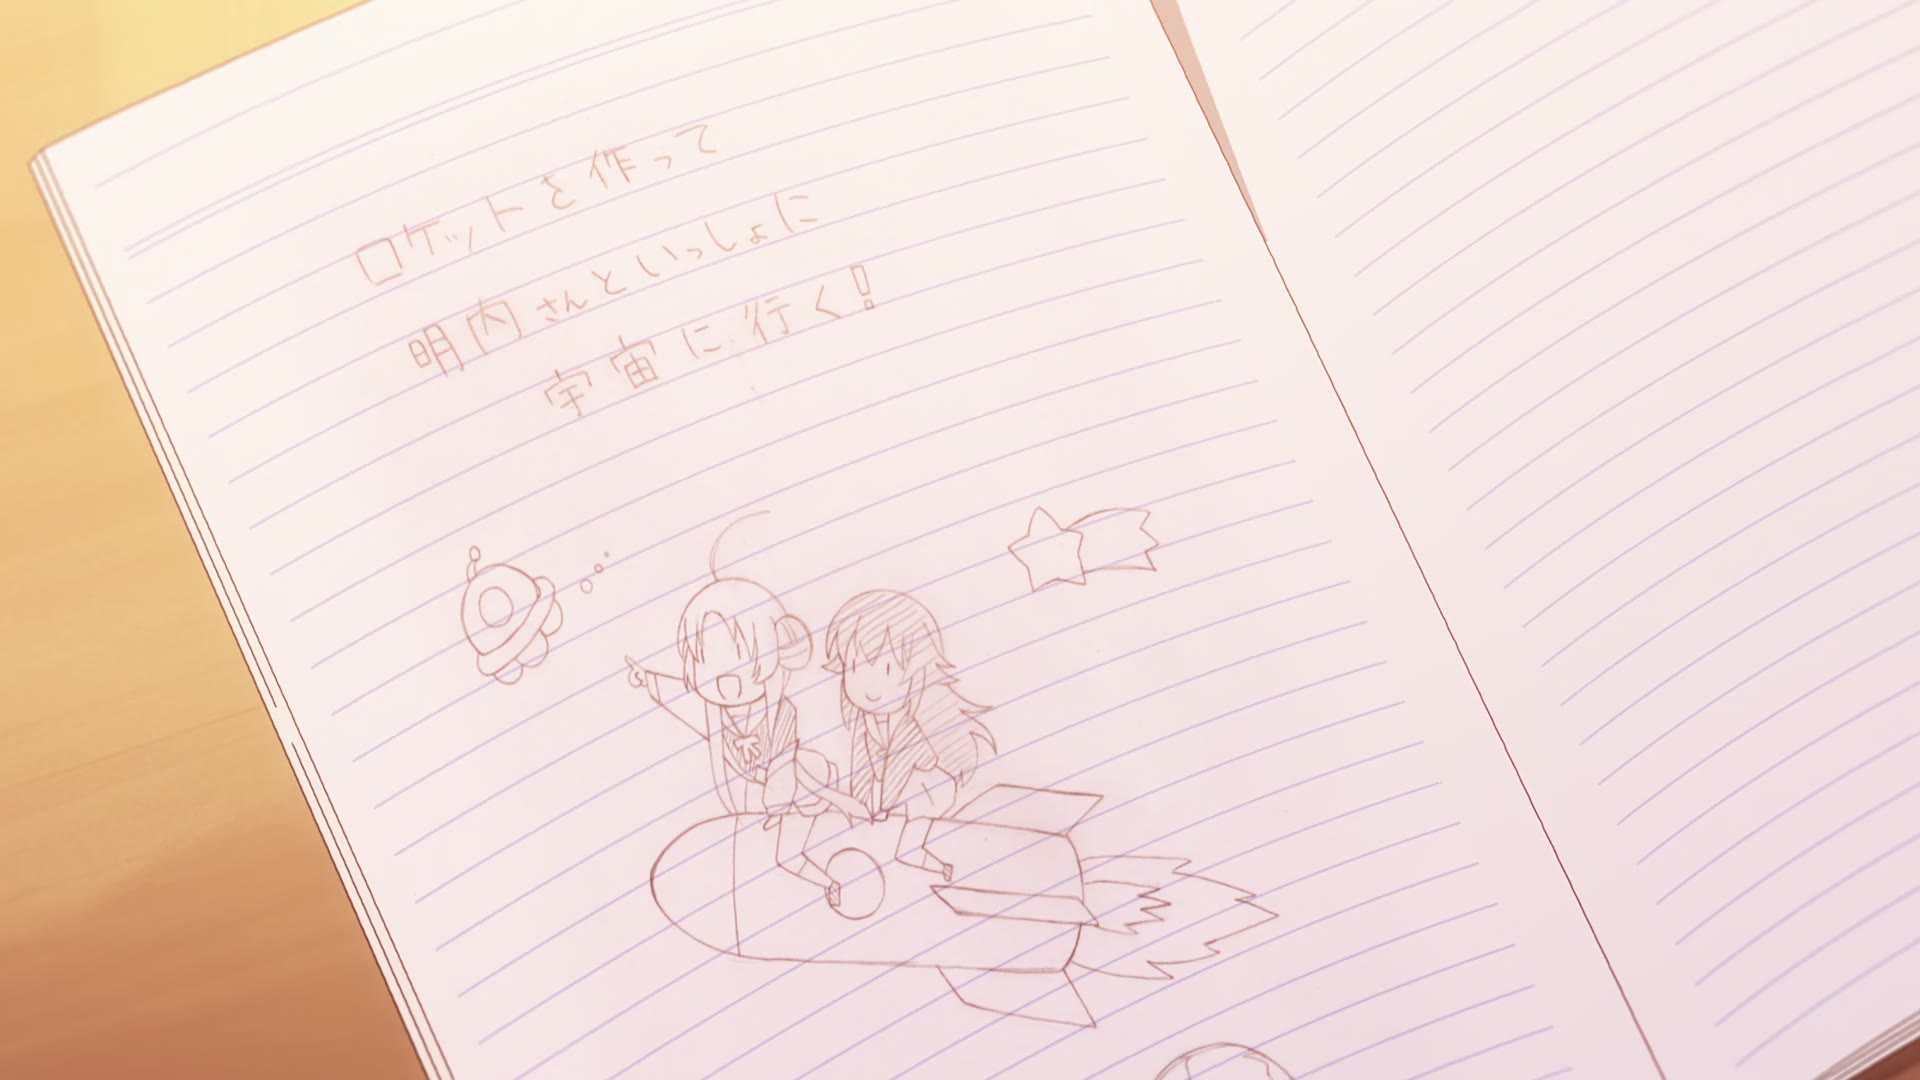 ロケットを作って
明内さんといっしょに
宇宙に行く!